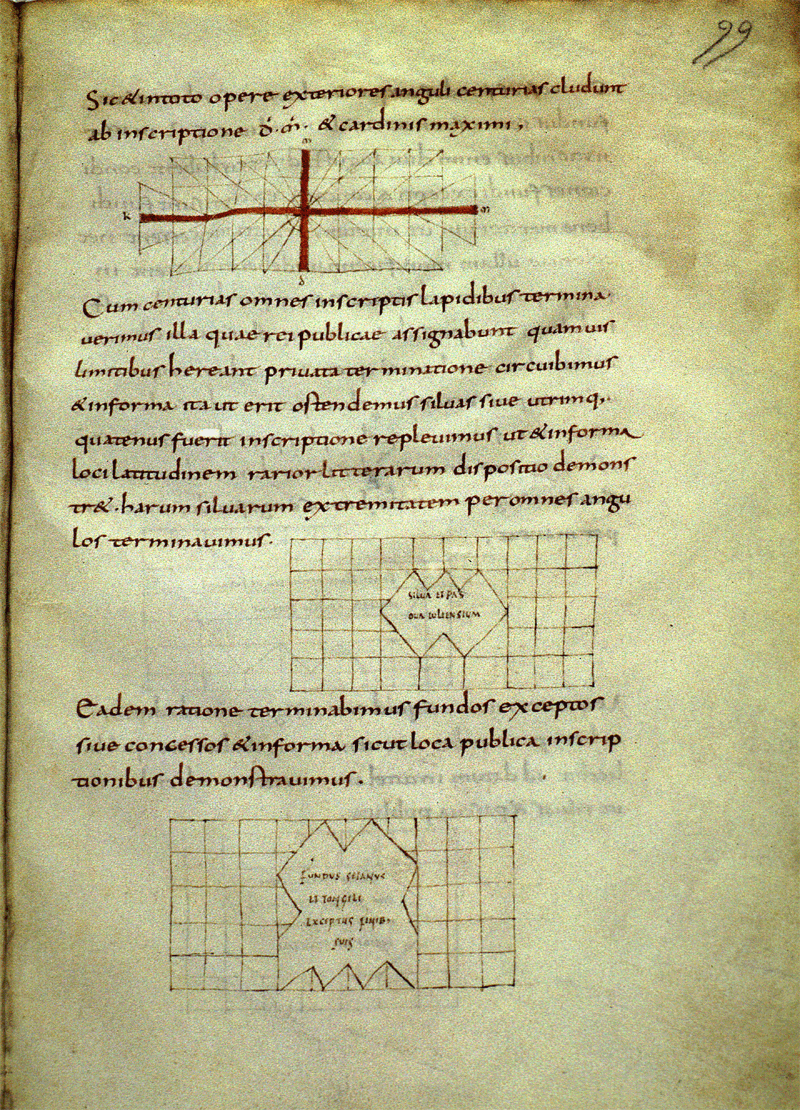 99
Sic & in toto opere exteriores anguli centurias cludunt
ab inscriptione d. m. & cardinis maximi,
m
k m
d
Cum centurias omnes inscriptis lapidibus termina
verimus illa quae rei publicae assignabunt quamvis
limitibus hereant privata terminatione circuibimus
& informa ita ut erit ostendemus silvas sive utrimq,
quatenus fuerit inscriptione replevimus ut & informa
loci latitudinem rarior litterarum dispositio demons
tr&. harum silvarum extremitatem per omnes angu
los terminavimus.
SILVA ET PAS
CUA IULIENSIUM
Eadem ratione terminabimus fundos exceptos
sive concessos & informa sicut loca publica inscrip
tionibus demonstravimus.
FUNDUS SEIANUS
EXCEPTUS
SUIS